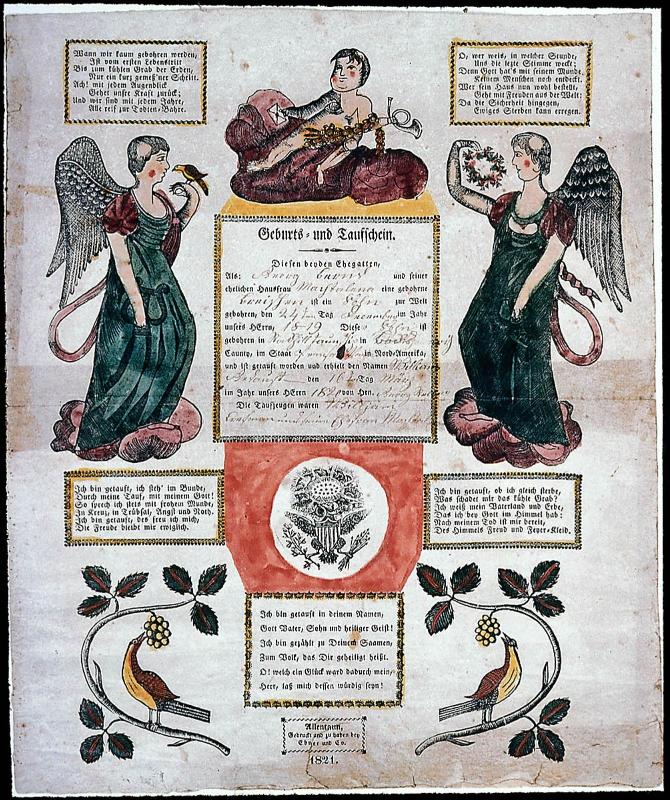 Wann wir kaum gebohren werden,
Ist vom ersten Lebenstrit
Bis zum kühlen Grab der Erden,
Nur ein kurz gemeß'ner Schritt.
Ach! mit jedem Augenblick
Gehet unsre Kraft zurück;
Und wir sind mit jedem Jahre,
Alle reif zur Todten-Bahre.
O, wer weis, in welcher Stunde,
Uns die lezte Stimme weckt;
Denn Gott hat's mit seinem Munde,
Keinem Menschen noch entdeckt.
Wer sein Haus nun wohl bestellt,
Geht mit Freuden aus der Welt;
Da die Sicherheit hingegen,
Ewiges Sterben kann erregen.
Geburts- und Taufschein.
Diesen beyden Ehegatten,
Als: Georg und seiner
ehelichen Hausfrau eine gebohrne
ist ein Sohn zur Welt
gebohren, den 24 Tag December im Jahr
unsers HErrn, 1819 Dieser Sohn ist
gebohren in in
Caunty, im Staat in Nord-Amerika;
und ist getauft worden und erhielt den Namen
den Tag
im Jahr unsers HErrn 1820 von Hrn. Georg
Die Taufzeugen waren

Ich bin getauft, ich steh' im Bunde,
Durch meine Tauf, mit meinem Gott!
So sprech ich stets mit frohem Munde,
In Kreuz, in Trübsal, Angst und Noth.
Ich bin getauft, des freu ich mich,
Die Freude bleibt mir ewiglich.
Ich bin getauft, ob ich gleich sterbe,
Was schadet mir das kühle Grab?
Ich weiß mein Vaterland und Erbe,
Das ich bey Gott im Himmel hab:
Nach meinem Tod ist mir bereit,
Des Himmels Freud und Feyer-Kleid.
Ich bin getauft in deinem Namen,
Gott Vater, Sohn und heiliger Geist!
Ich bin gezählt zu Deinem Saamen,
Zum Volk, das Dir geheiligt heißt.
O! welch ein Glück ward dadurch mein,
Herr, laß mich dessen würdig seyn!
Allentaun,
Gedruckt und zu haben bey
Ebner und Co.
1821.